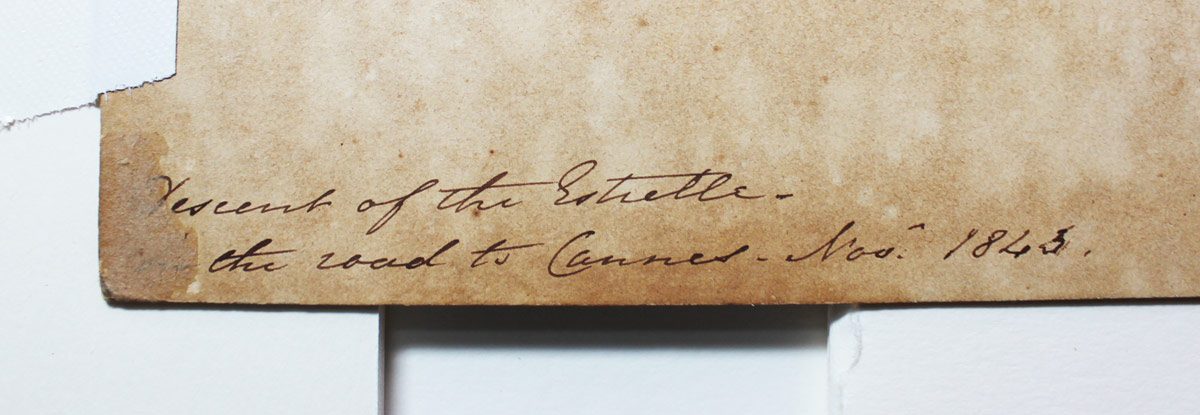 Descent of the Estrelle -
the road to Cannes - Nov.r 1843.